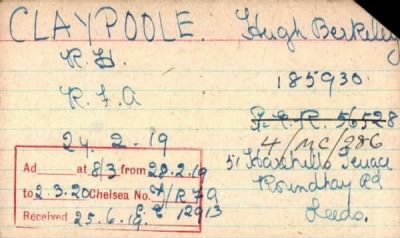 CLAYPOOLE. Hugh Berkeley
R.H. 185930.
R.F.A G.E.R. 56528
4/MC/286
24.2.19 51 Harehills Terrace
Roundhay Rd
Leeds.
Ad at 8/3 from 28.2.19
to 2.3.20 Chelsea No. 7/R 79
Received 25.6.19. 12913